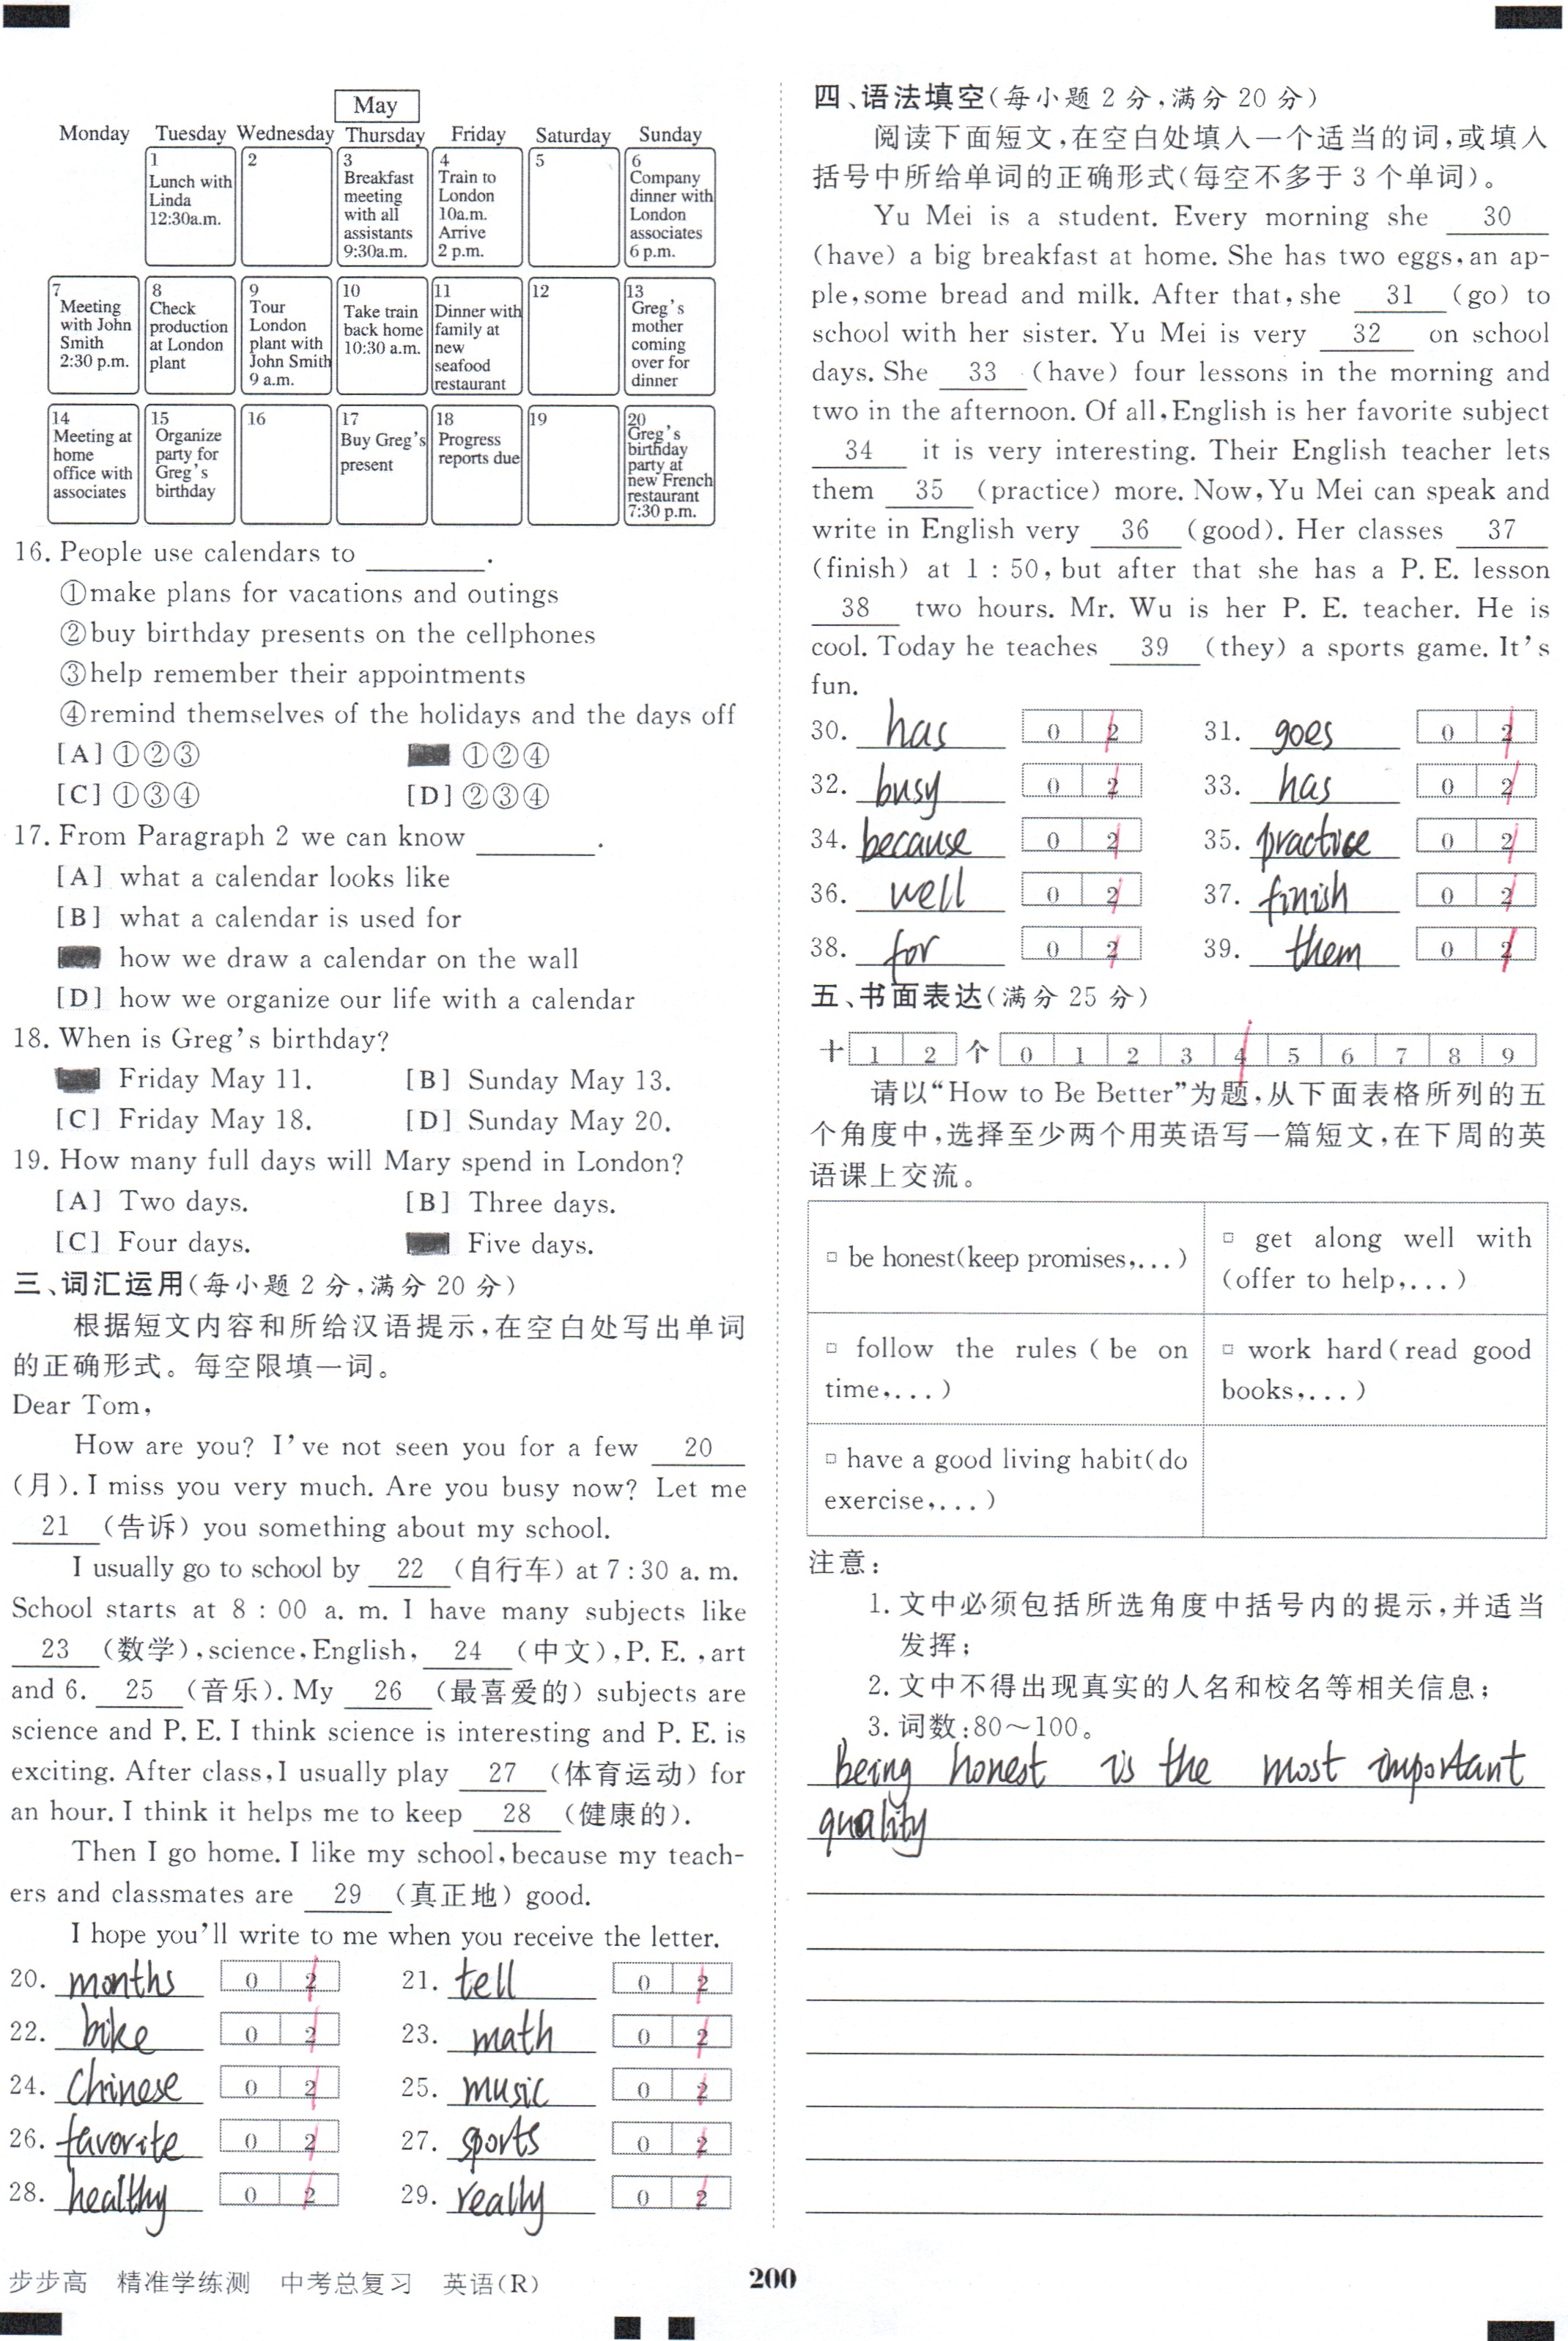 May
Monday Tuesday Wednesday Thursday Friday Saturday Sunday
1
Lunch with
Linda
12:30a.m.
2
3
Breakfast
meeting
with all
assistants
9:30a.m.
4
Train to
London
10a.m.
Arrive
2 p.m.
5
6
Company
dinner with
London
associates
6 p.m.
7
Meeting
with John
Smith
2:30 p.m.
8
Check
production
at London
plant
9
Tour
London
plant with
John Smith
9 a.m.
10
Take train
back home
10:30 a.m.
11
Dinner with
family at
new
seafood
restaurant
12
13
Greg's
mother
coming
over for
dinner
14
Meeting at
home
office with
associates
15
Organize
party for
Greg's
birthday
16
17
Buy Greg's
present
18
Progress
reports due
19
20
Greg's
birthday
party at
new French
restaurant
7:30 p.m.
16. People use calendars to ________.
①make plans for vacations and outings
②buy birthday presents on the cellphones
③help remember their appointments
④remind themselves of the holidays and the days off
[A] ①②③ ①②④
[C] ①③④ [D] ②③④
17. From Paragraph 2 we can know ________.
[A] what a calendar looks like
[B] what a calendar is used for
how we draw a calendar on the wall
[D] how we organize our life with a calendar
18. When is Greg's birthday?
Friday May 11. [B] Sunday May 13.
[C] Friday May 18. [D] Sunday May 20.
19. How many full days will Mary spend in London?
[A] Two days. [B] Three days.
[C] Four days. Five days.
三、词汇运用(每小题 2 分,满分 20 分)
根据短文内容和所给汉语提示,在空白处写出单词
的正确形式。每空限填一词。
Dear Tom,
How are you? I've not seen you for a few 20
(月). I miss you very much. Are you busy now? Let me
21 (告诉) you something about my school.
I usually go to school by 22 (自行车) at 7:30 a. m.
School starts at 8 : 00 a. m. I have many subjects like
23 (数学), science, English, 24 (中文), P. E. , art
and 6. 25 (音乐). My 26 (最喜爱的) subjects are
science and P. E. I think science is interesting and P. E. is
exciting. After class, I usually play 27 (体育运动) for
an hour. I think it helps me to keep 28 (健康的).
Then I go home. I like my school, because my teach-
ers and classmates are 29 (真正地) good.
I hope you'll write to me when you receive the letter.
20. months 0 2 21. tell 0 2
22. bike 0 2 23. math 0 2
24. Chinese 0 2 25. music 0 2
26. favorite 0 2 27. sports 0 2
28. healthy 0 2 29. really 0 2
四、语法填空(每小题 2 分,满分 20 分)
阅读下面短文,在空白处填入一个适当的词,或填入
括号中所给单词的正确形式(每空不多于 3 个单词)。
Yu Mei is a student. Every morning she 30
(have) a big breakfast at home. She has two eggs, an ap-
ple, some bread and milk. After that, she 31 (go) to
school with her sister. Yu Mei is very 32 on school
days. She 33 (have) four lessons in the morning and
two in the afternoon. Of all, English is her favorite subject
34 it is very interesting. Their English teacher lets
them 35 (practice) more. Now, Yu Mei can speak and
write in English very 36 (good). Her classes 37
(finish) at 1 : 50, but after that she has a P. E. lesson
38 two hours. Mr. Wu is her P. E. teacher. He is
cool. Today he teaches 39 (they) a sports game. It's
fun.
30. has 0 2 31. goes 0 2
32. busy 0 2 33. has 0 2
34. because 0 2 35. practice 0 2
36. well 0 2 37. finish 0 2
38. for 0 2 39. them 0 2
五、书面表达(满分 25 分)
十 1 2 个 0 1 2 3 4 5 6 7 8 9
请以“How to Be Better”为题,从下面表格所列的五
个角度中,选择至少两个用英语写一篇短文,在下周的英
语课上交流。
□ be honest(keep promises,...)
□ get along well with
(offer to help,...)
□ follow the rules ( be on
time,...)
□ work hard(read good
books,...)
□ have a good living habit(do
exercise,...)
注意:
1. 文中必须包括所选角度中括号内的提示,并适当
发挥;
2. 文中不得出现真实的人名和校名等相关信息;
3. 词数:80~100。
Being honest is the most important
quality
步步高 精准学练测 中考总复习 英语(R)
200